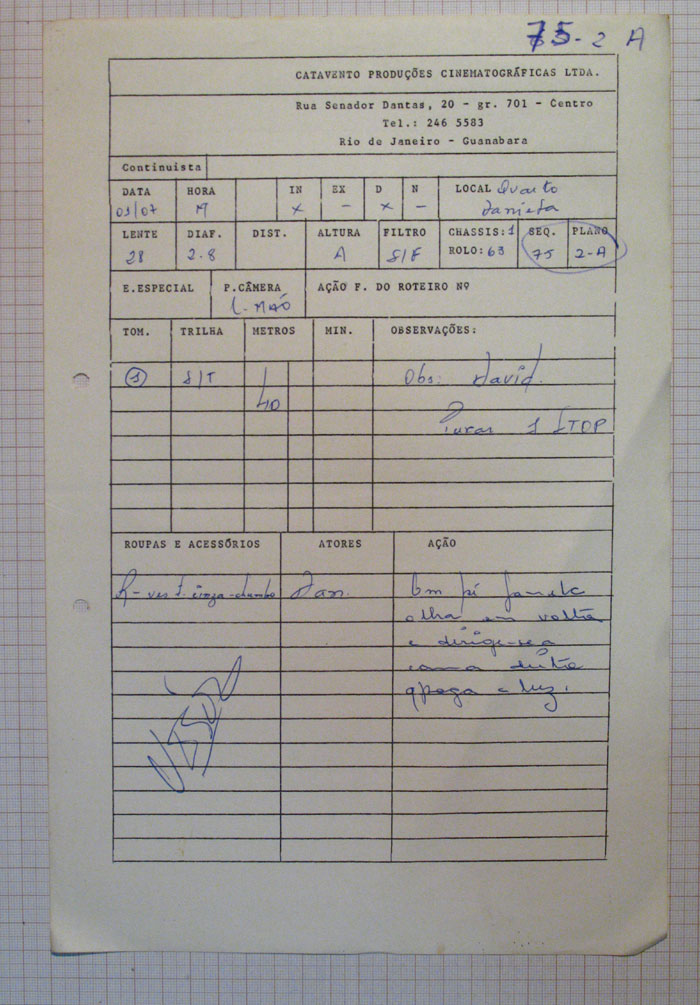 75-2 A
CATAVENTO PRODUÇÕES CINEMATOGRÁFICAS LTDA.
Rua Senador Dantas, 20 - gr. 701 - Centro
Tel.: 246 5583
Rio de Janeiro - Guanabara
Continuista
DATA HORA IN EX D N LOCAL Quarto
01/07 M x - x - Daniela
LENTE DIAF. DIST. ALTURA FILTRO CHASSIS: 1 SEQ. PLANO
28 2.8 A S/F ROLO: 63 75 2-A
E.ESPECIAL P.CÂMERA AÇÃO F. DO ROTEIRO Nº
MÃO
TOM. TRILHA METROS MIN. OBSERVAÇÕES:
1 S/T 40 Obs: David
Puxar 1 STOP
ROUPAS E ACESSÓRIOS ATORES AÇÃO
R- cinza-chumbo Dan. Em pé janela
olha em volta
e dirige-se a
cama deita
apaga a luz.